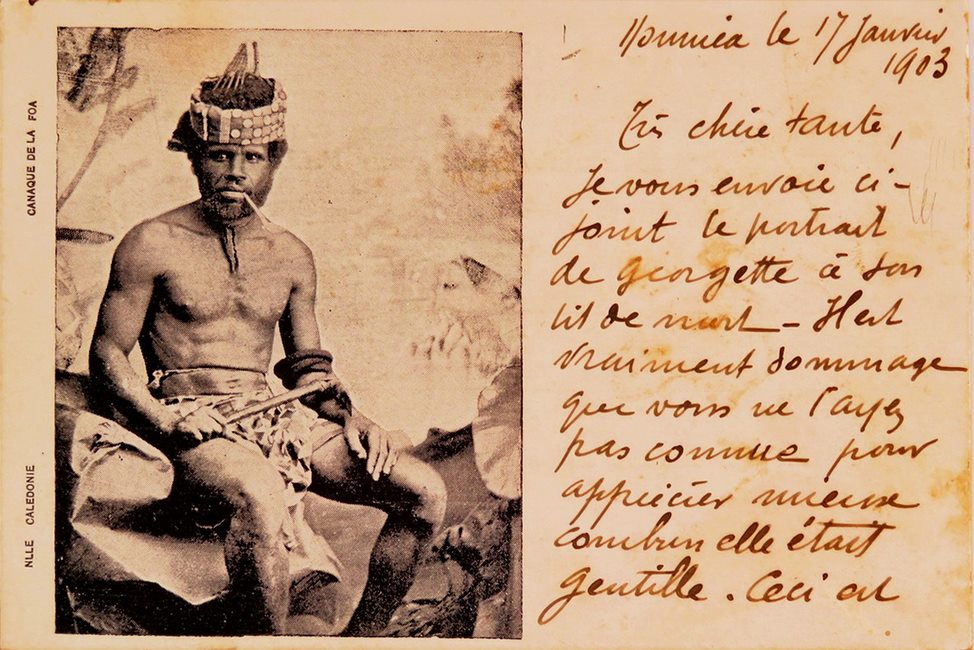 CANAQUE DE LA FOA
NLLE CALEDONIE
Nouméa le 17 Janvier
1903
Très chère tante,
Je vous envoie ci-
joint le portrait
de Georgette à son
lit de mort - Il est
vraiment dommage
que vous ne l'ayez
pas connue pour
apprécier mieux
combien elle était
gentille. Ceci est